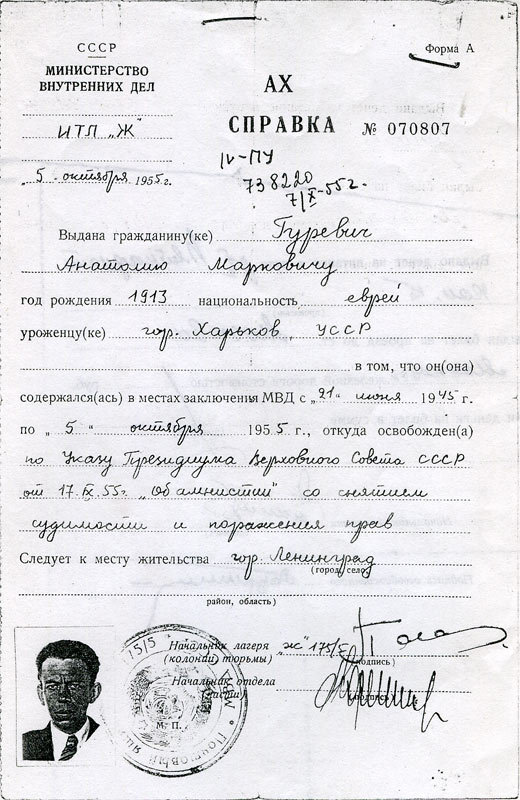 СССР
МИНИСТЕРСТВО
ВНУТРЕННИХ ДЕЛ
ИТЛ „Ж"
„5" октября 1955 г.
Форма А
АХ
СПРАВКА № 070807
IV-ПУ
738220
7/X-55 г.
Выдана гражданину(ке) Гуревич
Анатолию Марковичу
год рождения 1913 национальность еврей
уроженцу(ке) гор. Харьков, УССР
в том, что он(она)
содержался(ась) в местах заключения МВД с „21" июня 1945 г.
по „5" октября 1955 г., откуда освобожден(а)
по Указу Президиума Верховного Совета СССР
от 17.IX.55г. „Об амнистии" со снятием
судимости и поражения прав
Следует к месту жительства гор. Ленинград
(город, село)
район, область)
Начальник лагеря „Ж" 175/5
(колонии, тюрьмы)
(подпись)
Начальник отдела
(части)
(подпись)
М. П.
Почтовый ящ